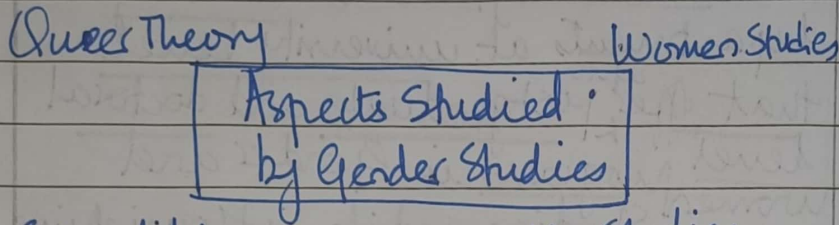 Queer Theory Women Studies
Aspects Studied
by Gender Studies